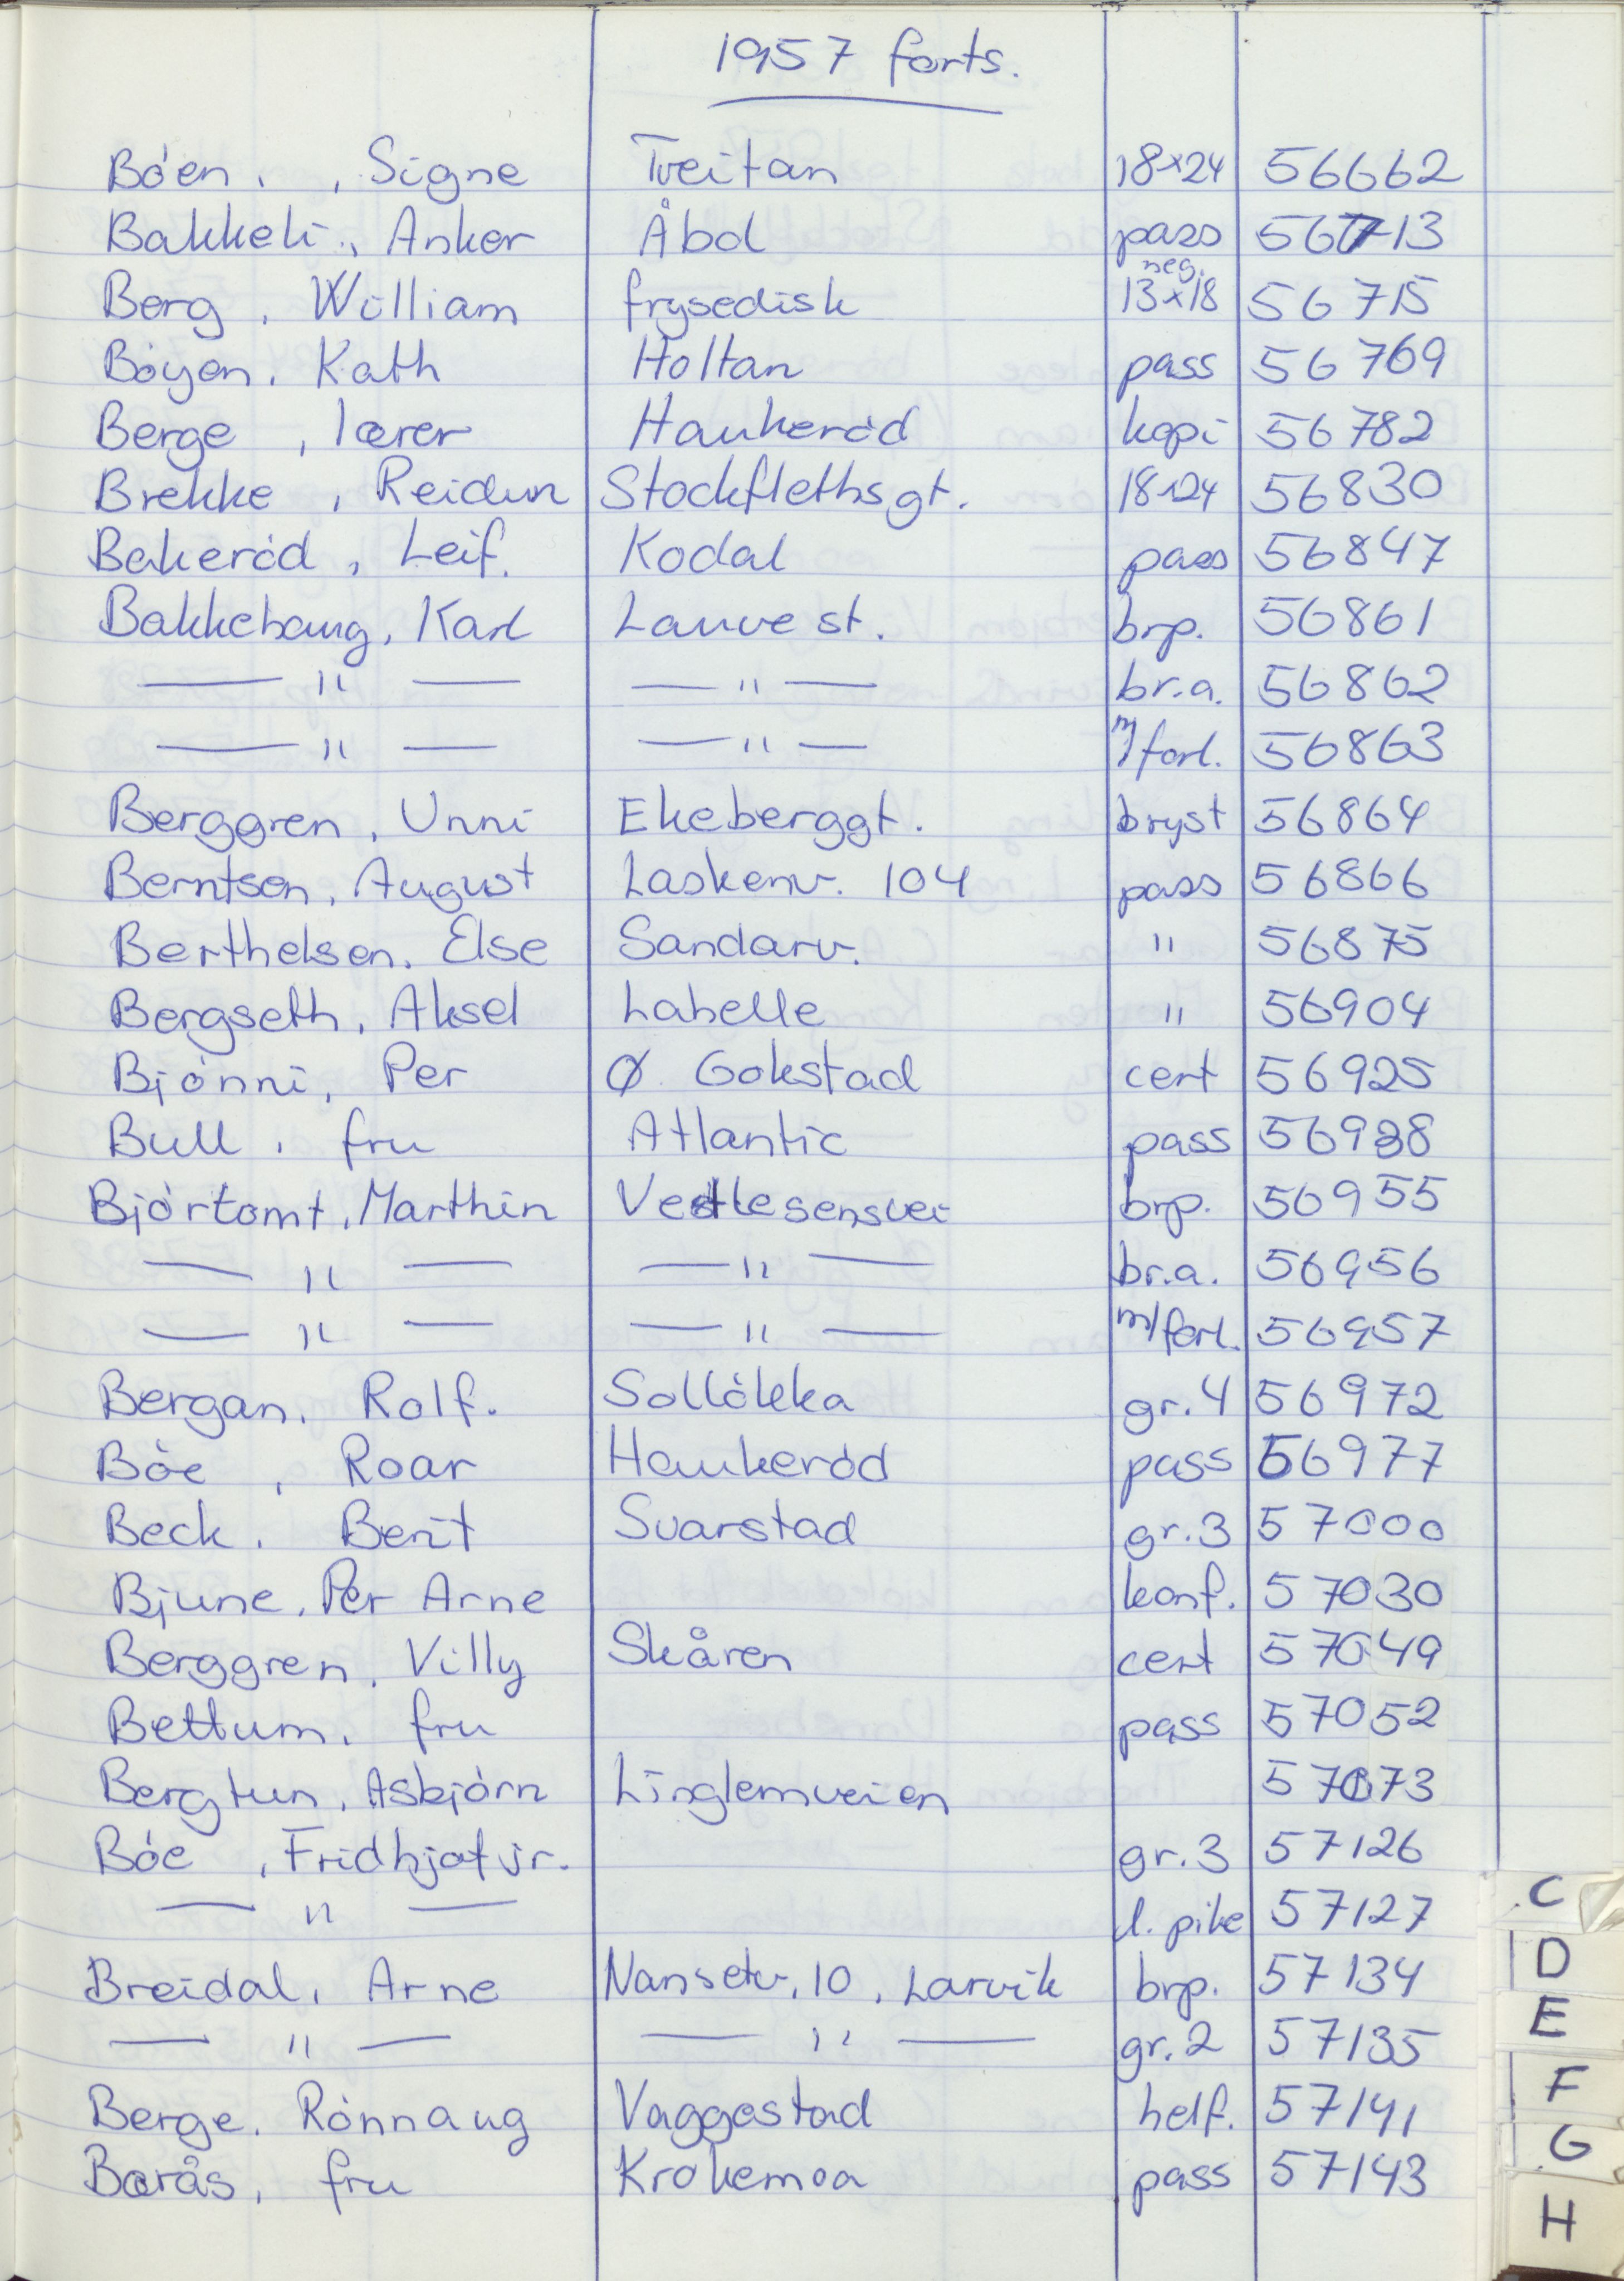 1957 forts.
Bóen, , Signe Tveitan 18x24 56662
Bakkeli, Anker Åbol pass 56713
Berg, William frysedisk neg. 13x18 56715
Bóyen, Kath Holtan pass 56769
Berge, lærer Haukeród kopi 56782
Brekke, Reidun Stockflethsgt. 18x24 56830
Bakeród, Leif. Kodal pass 56847
Bakkehaug, Karl Lauve st. brp. 56861
— " — — " — br.a. 56862
— " — — " — m/forl. 56863
Berggren, Unni Ekeberggt. bryst 56864
Berntsen, August Laskenv. 104 pass 56866
Berthelsen, Else Sandarv. " 56875
Bergseth, Aksel Labelle " 56904
Bjónni, Per Ø. Gokstad cert 56925
Bull, fru Atlantic pass 56938
Bjórtomt, Marthin Vetlesensvei brp. 56955
— " — — " — br.a. 56956
— " — — " — m/forl. 56957
Bergan, Rolf. Sollókka gr.4 56972
Bóe, Roar Haukeród pass 56977
Beck, Berit Svarstad gr.3 57000
Bjune, Per Arne konf. 57030
Berggren, Villy Skåren cert 57049
Bettum, fru pass 57052
Bergtun, Asbjórn Linglemveien 57073
Bóe, Fridhjof jr. gr.3 57126
— " — l. pike 57127
Breidal, Arne Nansetv. 10, Larvik brp. 57134
— " — — " — gr.2 57135
Berge, Rónnaug Vaggestad helf. 57141
Barås, fru Krokemoa pass 57143
C
D
E
F
G
H